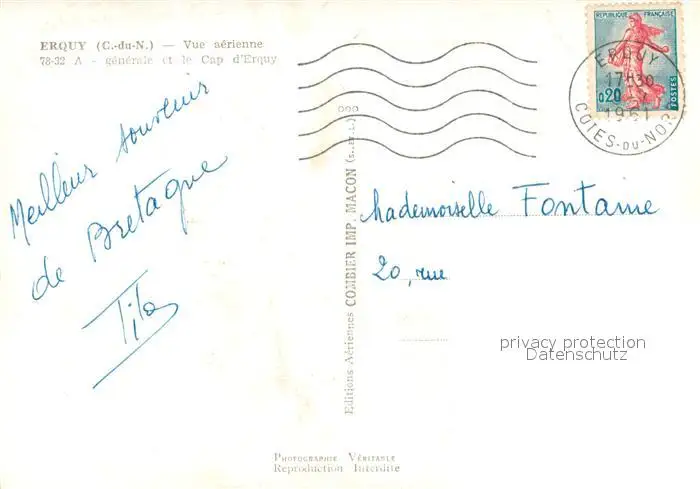 ERQUY (C.-du-N.) — Vue aérienne
78-32 A - générale et le Cap d'Erquy
Meilleur souvenir
de Bretagne
REPUBLIQUE FRANÇAISE
0,20
POSTES
ERQUY
17H30
1961
COTES-DU-NOR
Editions Aériennes COMBIER IMP. MACON (S.-ET-L.)
Mademoiselle Fontaine
20, rue
privacy protection
Datenschutz
PHOTOGRAPHIE VÉRITABLE
Reproduction Interdite